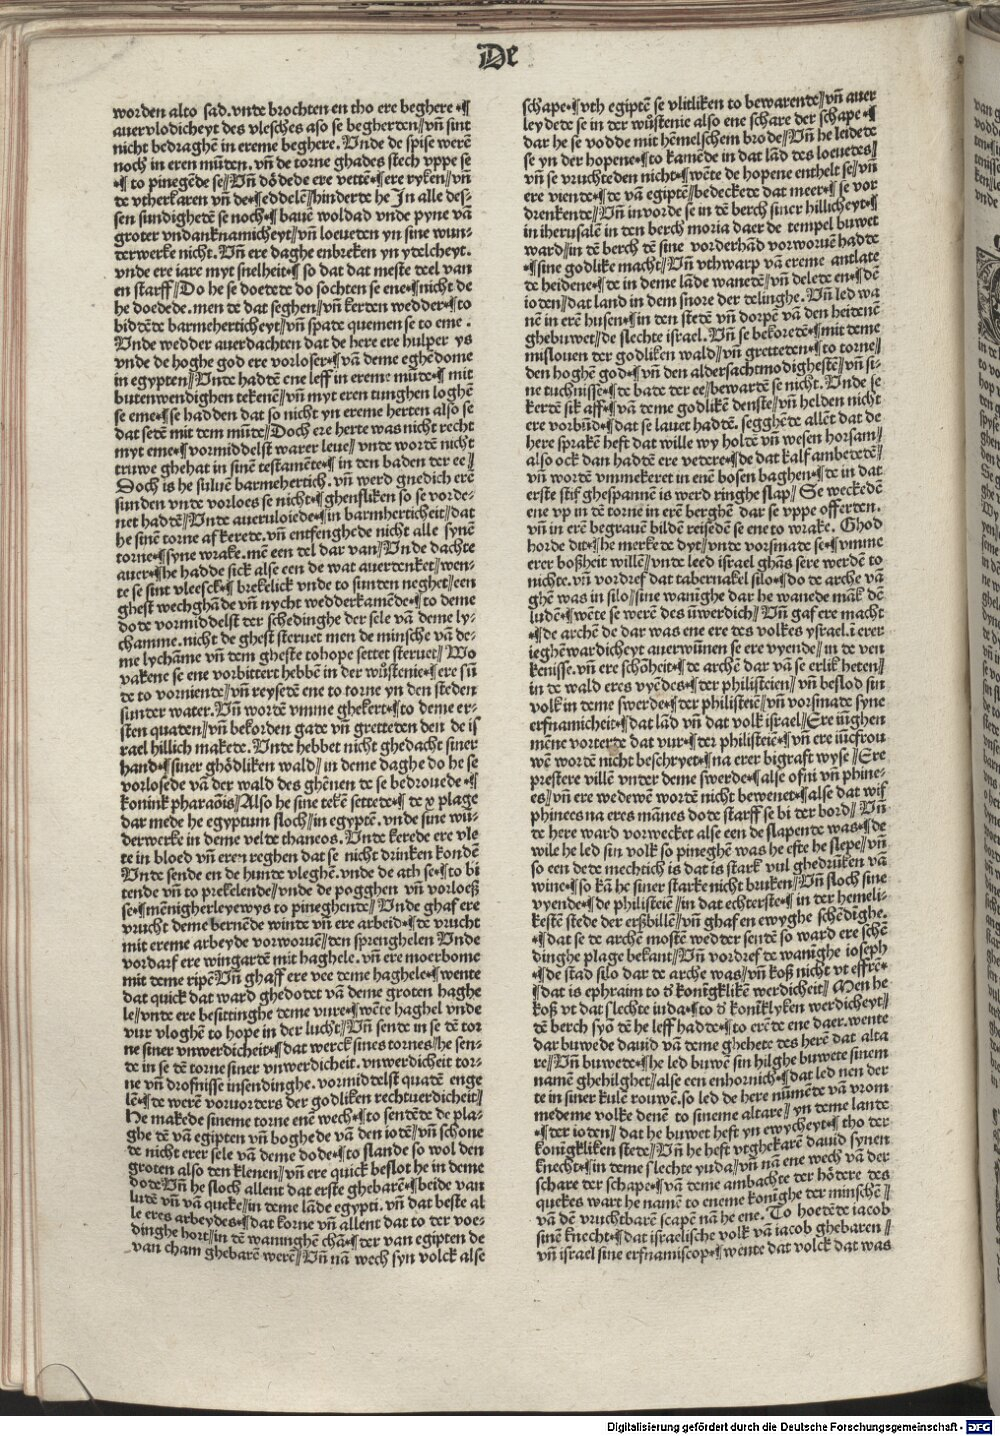 De
worden alto sad. vnde brochten en tho ere beghere •¶
auervlodicheyt des vlesches aso se begherden // vn̄ sint
nicht bedraghē in ereme beghere. Vnde de spise werē
noch in eren mūden. vn̄ de torne ghades stech vppe se
•¶ to pinegēde se // Vn̄ dȫdede ere vettē •¶ ere ryken // vn̄
de vtherkaren vn̄ de •¶ eddelē // hinderde he Jn alle des⸗
sen sundighetē se noch •¶ bauē woldad vnde pyne vā
groter vndanknamicheyt // vn̄ loeueden yn sine wun⸗
derwerke nicht. Vn̄ ere daghe enbreken yn ydelcheyt.
vnde ere iare myt snelheit •¶ so dat dat meste deel van
en starff // Do he se doetede do sochten se ene •¶ nicht de
he doedede. men de dat seghen // vn̄ kerden wedder •¶ to
biddēde barmeherticheyt // vn̄ spade quemen se to eme .
Vnde wedder auerdachten dat de here ere hulper ys
vnde de hoghe god ere vorloser •¶ vā deme eghēdome
in egypten // Vnde hadtē ene leff in ereme mūde •¶ mit
butenwendighen tekenē // vn̄ myt eren tunghen loghē
se eme •¶ se hadden dat so nicht yn ereme herten also se
dat setē mit dem mūde // Doch ere herte was nicht recht
myt eme •¶ vormiddelst warer leue // vnde wordē nicht
truwe ghehat in sinē testamēte •¶ in den baden der ee //
Doch is he suluē barmehertich. vn̄ werd gnedich erē
sunden vnde vorloes se nicht •¶ ghensliken so se vorde⸗
net hadtē // Vnde aueruloiede •¶ in barmherticheit // dat
he sinē torne af kerede. vn̄ entfenghede nicht alle synē
torne •¶ syne wrake. mē een del dar van // Vnde dachte
auer •¶ he hadde sick alse een de wat auerdenket // wen⸗
te se sint vleesck •¶ brekelick vnde to sunden neghet // een
ghest wechghāde vn̄ nycht wedderkamēde •¶ to deme
dode vormiddelst der schedinghe der sele vā deme ly⸗
chamme. nicht de ghest steruet men de minsche vā de⸗
me lychāme vn̄ dem gheste tohope settet steruet // Wo
vakene se ene vorbittert hebbē in der wůstenie •¶ ere sū
de to vorniende // vn̄ reysedē ene to torne yn den steden
sunder water. Vn̄ wordē vmme ghekert •¶ to deme er⸗
sten quaden // vn̄ bekorden gade vn̄ gretteden den de is
rael hillich makede. Vnde hebbet nicht ghedacht siner
hand •¶ siner ghȫdliken wald // in deme daghe do he se
vorlosede vā der wald des ghēnen de se bedrouede •¶
konink pharaōis // Also he sine tekē settede •¶ de x plage
dar mede he egyptum sloch // in egyptē. vnde sine wū⸗
derwerke in deme velde thaneos. Vnde kerede ere vle
te in bloed vn̄ eren reghen dat se nicht drinken kondē
Vnde sende en de hunde vleghē. vnde de ath se •¶ to bi
tende vn̄ to prekelende // vnde de pogghen vn̄ vorloeß
se •¶ mēnigherleyewys to pineghende // Vnde ghaf ere
vrucht deme bernēde winde vn̄ ere arbeid •¶ de vrucht
mit ereme arbeyde vorworuē // den sprenghelen Vnde
vordarf ere wingardē mit haghele. vn̄ ere moerbome
mit deme ripē Vn̄ ghaff ere vee deme haghele •¶ wente
dat quick dat ward ghedodet vā deme groten haghe
le // vnde ere besittinghe deme vure •¶ wēte haghel vnde
vur vloghē to hope in der lucht // Vn̄ sende in se dē tor
ne siner vnwerdicheit •¶ dat werck sines tornes // he sen⸗
de in se dē torne siner vnwerdicheit. vnwerdicheit tor⸗
ne vn̄ drofnisse insendinghe. vormiddelst quadē enge
lē •¶ de werē voruorders der godliken rechtuerdicheit //
He makede sineme torne enē wech •¶ to sendēde de pla⸗
ghe dē vā egipten vn̄ boghede vā den iodē // vn̄ schone
de nicht erer sele vā deme dode •¶ to slande so wol den
groten also den klenen // vn̄ ere quick beslot he in deme
dode Vn̄ he sloch allent dat erste ghebarē •¶ beide van
ludē vn̄ vā queke // in deme lāde egypti. vn̄ dat beste al
le eres arbeydes •¶ dat korne vn̄ allent dat to der voe⸗
dinghe hort // in dē waninghē chā •¶ der van egipten de
van cham ghebarē werē // Vn̄ nā wech syn volck alse
schape •¶ vth egiptē se vlitliken to bewarende // vn̄ auer
leydede se in der wůstenie also ene schare der schape •¶
dar he se vodde mit hēmelschem brode // Vn̄ he leidede
se yn der hopene •¶ to kamēde in dat lād des loeuedes //
vn̄ se vruchteden nicht •¶ wēte de hopene enthelt se // vn̄
ere viende •¶ de vā egiptē // bedeckete dat meer •¶ se vor
drenkende // Vn̄ invorde se in dē berch siner hillicheyt •¶
in iherusalē in den berch moria daer de tempel buwet
ward // in dē berch dē sine vorderhād vorworuē hadde
•¶ sine godlike macht // Vn̄ vthwarp vā ereme antlate
de heidene •¶ de in deme lāde wanedē // vn̄ delede en •¶ dē
ioden // dat land in dem snore der delinghe. Vn̄ led wa
nē in erē husen •¶ in den stedē vn̄ dorpē vā den heidenē
ghebuwet // de slechte israel. Vn̄ se bekoredē •¶ mit deme
mislouen der godliken wald // vn̄ gretteden •¶ to torne //
den hoghē god •¶ vn̄ den aldersachtmodighestē // vn̄ si⸗
ne tuchnissē •¶ de bade der ee // bewardē se nicht. Vnde se
kerdē sik aff •¶ vā deme godlikē denste // vn̄ helden nicht
ere vorbūd •¶ dat se lauet hadtē. segghēde allēt dat de
here sprakē heft dat wille wy holdē vn̄ wesen horsam //
also ock dan hadtē ere vedere •¶ de dat kalf ambededē //
vn̄ wordē vmmekeret in enē bosen baghen •¶ de in dat
erste stif ghespannē is werd ringhe slap // Se weckedē
ene vp in dē torne in erē berghē dar se vppe offerden.
vn̄ in erē begrauē bildē reisedē se ene to wrake. Ghod
horde dit •¶ he merkede dyt // vnde vorsmade se •¶ vmme
erer boßheit willē // vnde leed israel ghās sere werdē to
nichte. vn̄ vordref dat tabernakel silo •¶ do de arche vā
ghē was in silo // sine wanighe dar he wanede māk dē
ludē •¶ wēte se werē des ūwerdich // Vn̄ gaf ere macht
•¶ de archē de dar was ene ere des volkes ysrael. ī erer
ieghēwardicheyt auerwūnen se ere vyende // in de ven
kenisse. vn̄ ere schȫheit •¶ de archē dar vā se erlik heten //
in de wald eres vyēdes •¶ der philisteien // vn̄ beslod sin
volk in deme swerde •¶ der philisteiē // vn̄ vorsmade syne
erfnamicheit •¶ dat lād vn̄ dat volk israel // Ere iūghen
mēne vorterde dat vur •¶ der philisteiē •¶ vn̄ ere iūcfrou
wē wordē nicht beschryet •¶ na erer bigraft wyse // Ere
prestere villē vnder deme swerde •¶ alse ofni vn̄ phine⸗
es // vn̄ ere wedewē wordē nicht bewenet •¶ alse dat wif
phinees na eres mānes dode starff se bi der bord // Vn̄
de here ward vorwecket alse een de slapende was •¶ de
wile he led sin volk so pineghē was he efte he slepe // vn̄
so een dede mechtich is dat is stark vul ghedrūken vā
wine •¶ so kā he siner starke nicht bruken // Vn̄ sloch sine
vyende •¶ de philisteiē // in dat echterste •¶ in der hemeli⸗
kestē stede der erßbillē // vn̄ ghaf en ewyghe schēdighe.
•¶ dat se de archē mostē wedder sendē so ward ere schē
dinghe plage bekant // Vn̄ vordref de wanighe ioseph
•¶ de stad silo dar de arche was // vn̄ koß nicht vt effre⸗
•¶ dat is ephraim to đ konīgklikē werdicheit // Men he
koß vt dat slechte iuda •¶ to đ konīklyken werdicheyt //
dē berch syō dē he leff hadde •¶ to erēde ene daer. wente
dar buwede dauid vā deme ghehete des herē dat alta
re // Vn̄ buwede •¶ he led buwē sin hilghe buwete sinem
namē ghehilghet // alse een enhornich •¶ dat led nen der
te in siner kulē rouwē. so led de here nūmēde vā vrom
medeme volke denē to sineme altare // yn deme lande
•¶ der ioden // dat he buwet heft yn ewycheyt •¶ tho der
konīgkliken stede // Vn̄ he heft vtghekarē dauid synen
knecht •¶ in deme slechte yuda // vn̄ nā ene wech vā der
schare der schape •¶ vā deme ambachte der hȫdere des
quekes ware he namē to eneme konīghe der minschē //
vā dē vruchtbarē scapen nā he ene. To hoedēde iacob
sinē knecht •¶ dat israelische volk vā iacob ghebaren //
vn̄ israel sine erfnamiscop •¶ wente dat volck dat was
Digitalisierung gefördert durch die Deutsche Forschungsgemeinschaft - DFG